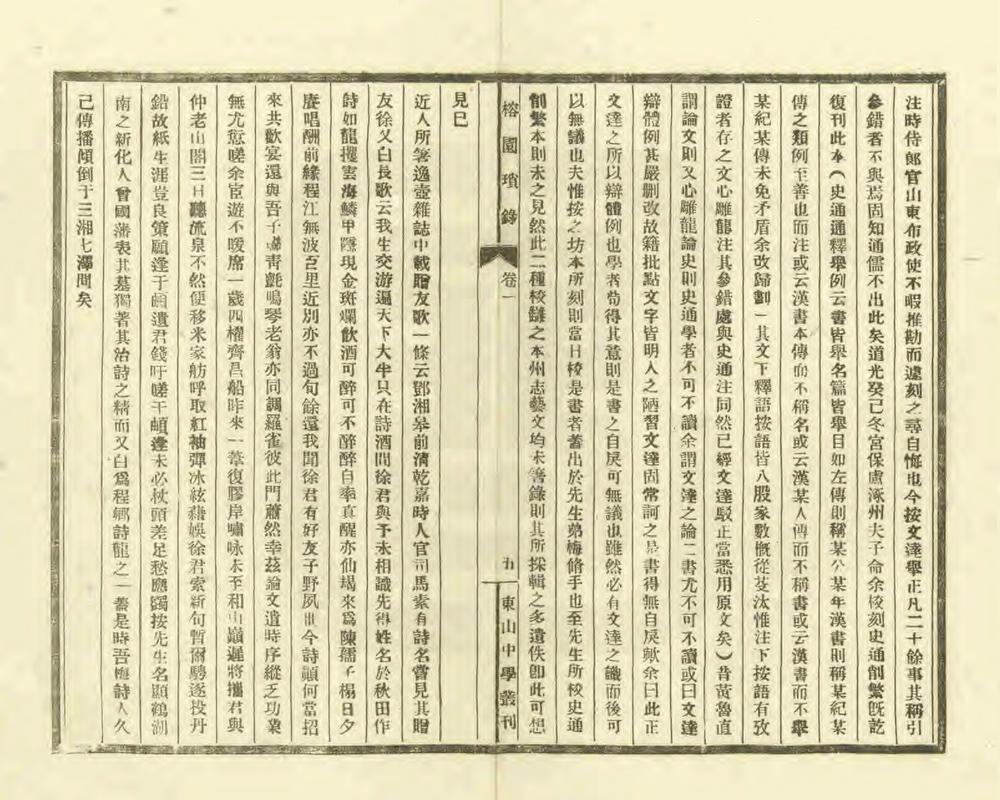 注時侍郎官山東布政使不暇推勘而遽刻之尋自悔也今按文達舉正凡二十餘事其稱引
參錯者不與焉固知通儒不出此矣道光癸己冬宮保盧涿州夫子命余校刻史通削繁旣訖
復刊此本(史通通釋舉例云書皆舉名篇皆舉目如左傳則稱某公某年漢書則稱某紀某
傳之類例至善也而注或云漢書本傳而不稱名或云漢某人傳而不稱書或云漢書而不舉
某紀某傳未免矛盾余改歸劃一其文下釋語按語皆八股家數槪從芟汰惟注下按語有攷
證者存之文心雕龍注其參錯處與史通注同然已經文達駁正當悉用原文矣)昔黃魯直
謂論文則文心雕龍論史則史通學者不可不讀余謂文達之論二書尤不可不讀或曰文達
辯體例甚嚴刪改故籍批點文字皆明人之陋習文達固常訶之是書得無自戾歟余曰此正
文達之所以辯體例也學者苟得其意則是書之自戾可無議也雖然必有文達之識而後可
以無議也夫惟按之坊本所刻則當日校是書者蓄出於先生弟梅脩手也至先生所校史通
削繁本則未之見然此二種校讎之本州志藝文均未箸錄則其所採輯之多遺佚卽此可想
見巳
榕園瑣錄 卷一 五 東山中學叢刊
近人所箸逸壺雜誌中載贈友歌一條云鄧湘皋前淸乾嘉時人官司馬素有詩名嘗見其贈
友徐又白長歌云我生交游遍天下大半只在詩酒間徐君與予未相識先得姓名於秋田作
詩如龍攫雲海鱗甲隱現金斑斕飮酒可醉可不醉醉自率眞醒亦仙朅來爲陳孺子榻日夕
賡唱酬前緣程江無波百里近別亦不過旬餘還我聞徐君有好友子野夙世今詩顚何當招
來共歡宴還與吾子 靑氈鳴琴老翁亦同調羅雀彼此門蕭然幸茲論文遣時序縱乏功業
無尤愆嗟余宦遊不暖席一歲四櫂齊昌船昨來一葦復膠岸嘯咏未至和山巓遲將攜君與
仲老山閣三日聽流泉不然便移米家舫呼取紅袖彈冰絃藉娛徐君索新句暫爾騁逐投丹
鉛故紙生涯豈良策願逢于 遺君錢吁嗟于頔逢未必杖頭差足愁應蠲按先生名顯鶴湖
南之新化人曾國藩表其墓獨著其治詩之精而又白爲程鄉詩龍之一蓋是時吾梅詩人久
己傳播傾倒于三湘七澤間矣